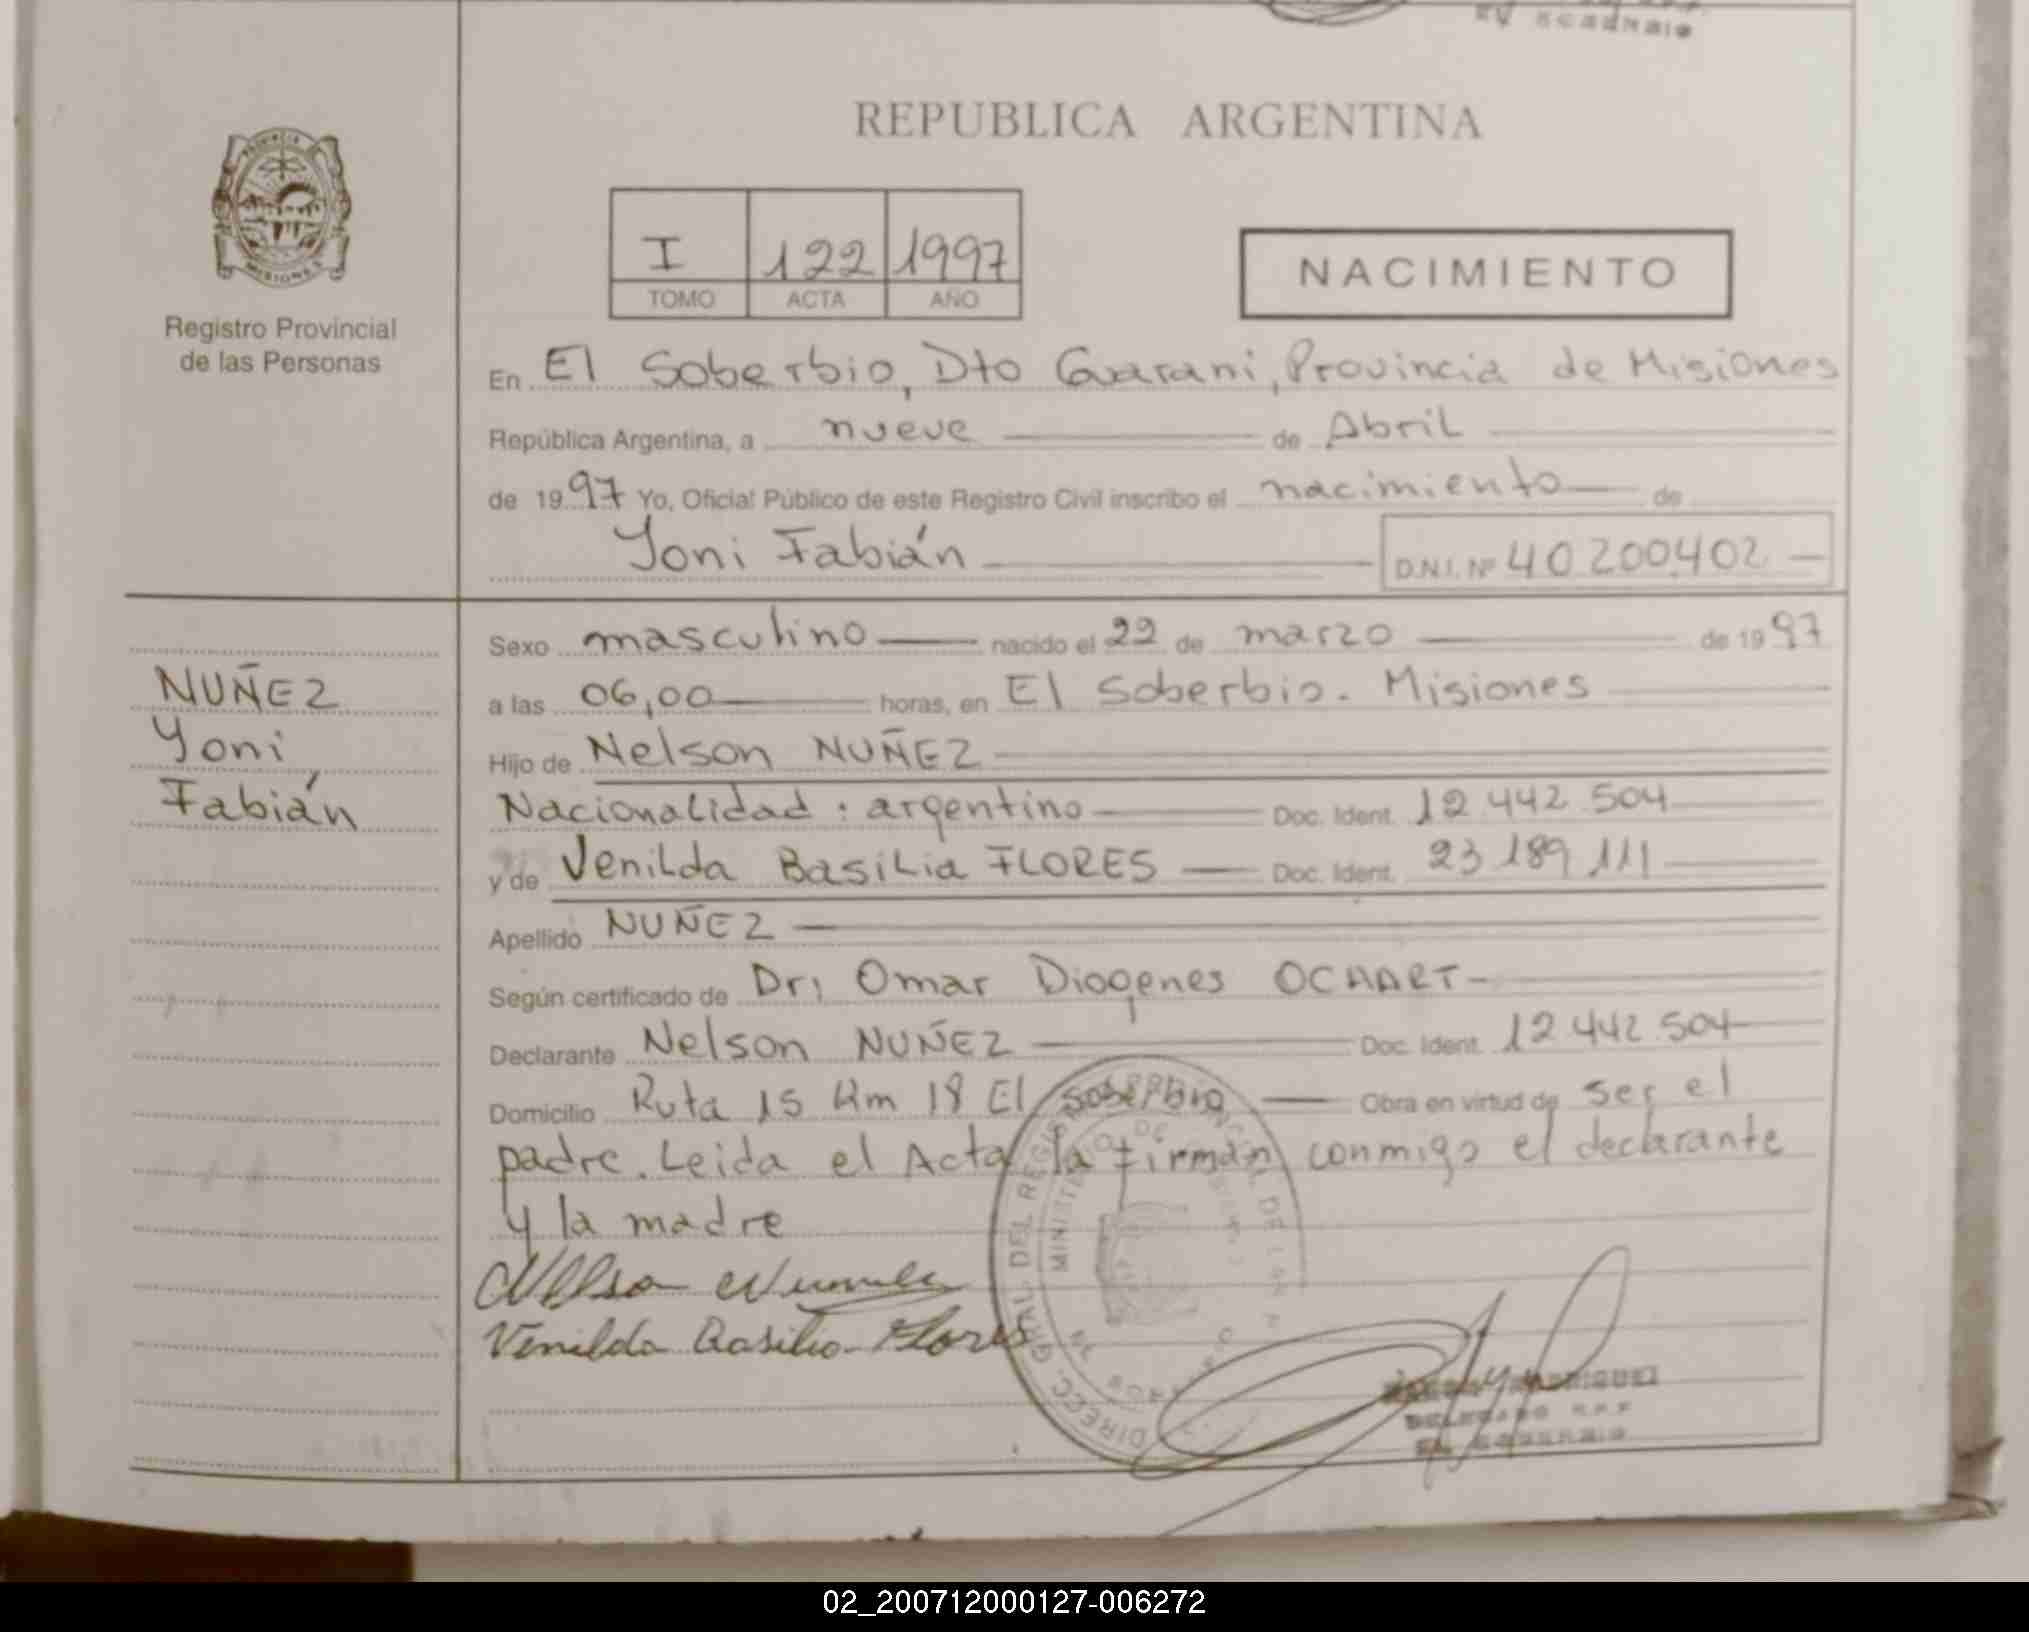 REPUBLICA ARGENTINA
PROVINCIA
MISIONES
Registro Provincial
de las Personas
I 122 1997
TOMO ACTA AÑO
NACIMIENTO
En El Soberbio, Dto Guarani, Provincia de Misiones
República Argentina, a nueve de Abril
de 1997 Yo, Oficial Público de este Registro Civil inscribo el nacimiento de
Yoni Fabián D.N.I. Nº 40200402
NUÑEZ
Yoni
Fabián
Sexo masculino nacido el 22 de marzo de 1997
a las 06,00 horas, en El Soberbio. Misiones
Hijo de Nelson NUÑEZ
Nacionalidad: argentino Doc. Ident. 12.442.504
y de Venilda Basilia FLORES Doc. Ident. 23.189.111
Apellido NUÑEZ
Según certificado de Dr, Omar Diogenes OCHART
Declarante Nelson NUÑEZ Doc. Ident. 12.442.504
Domicilio Ruta 15 Km 18 El Soberbio Obra en virtud de ser el
padre. Leida el Acta la firman conmigo el declarante
y la madre
Venilda Basilia Flores
EL SOBERBIO
02_200712000127-006272